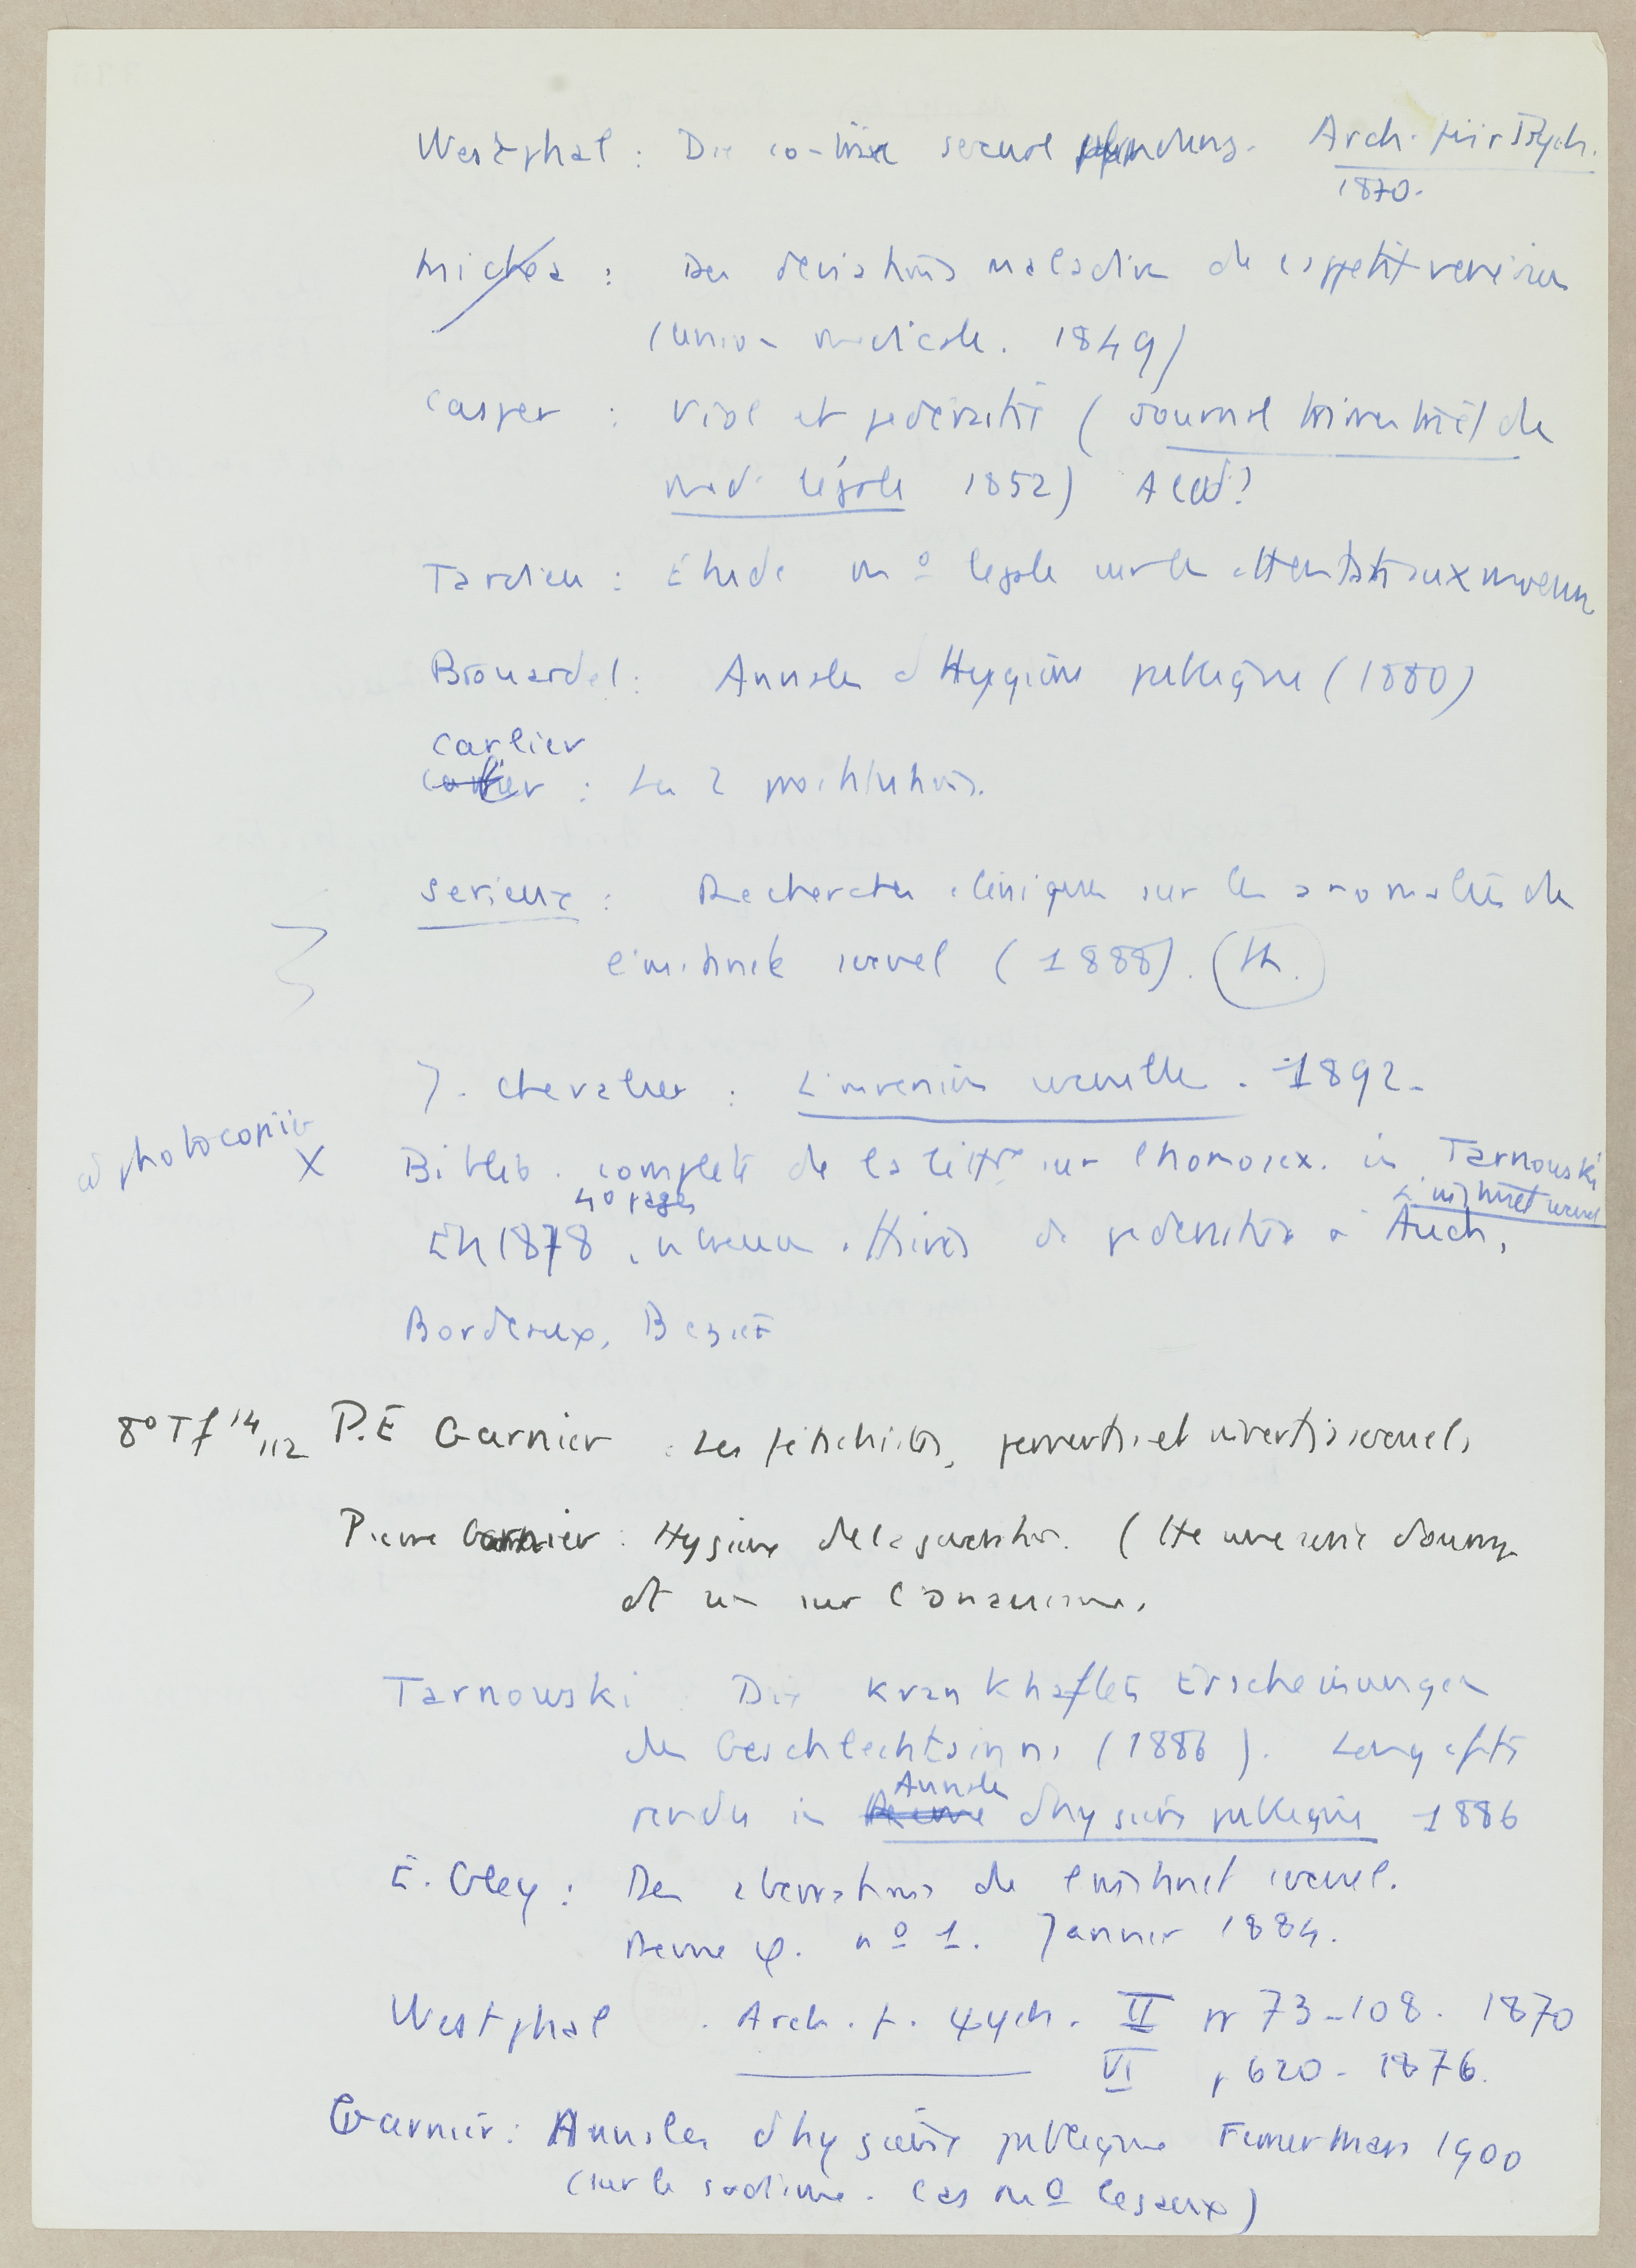 Westphal : Die co-träre sexual Empfindung. Arch. für Psych.
1870.
Michea : Des deviations maladives de l'appetit venerien
(Union medicale. 1849)
Casper : Viol et pederastie ( Journal trimestriel de
med. légale 1852) Acad ?
Tardieu : Etude mo legale sur les attentats aux moeurs
Brouardel : Annales d'Hygiène publique (1880)
Carlier
: Les 2 prostitutions.
Serieux : Recherches cliniques sur les anomalies de
l'instinct sexuel ( 1888). (th.
J. Chevalier : L'inversion sexuelle . 1892 -
à photocopier X Biblio. complete de la littre sur l'homosex. in Tarnowski
40 pages L'instinct sexuel
En 1878 , affaires de pederastie à Auch,
Bordeaux, Bezier
8o Tf 14 112 P.E Garnier : Les fetichistes, pervertis et invertis sexuels
Pierre Garnier : Hygiene de la generation. (
et un sur l'onanisme.
Tarnowski Die krankhaften Erscheinungen
des Geschlechtsinns (1886 ). Long cpte
rendu in Annales d'hygiène publique 1886
E. Gley : Des aberrations de l'instinct sexuel.
Revue φ. no 1. Janvier 1884.
Westphal . Arch. f. ψych. II pp 73-108. 1870
VI p 620 - 1876.
Garnier : Annales d'hygiène publique Fevrier Mars 1900
(sur le sadisme. Cas mo legaux)